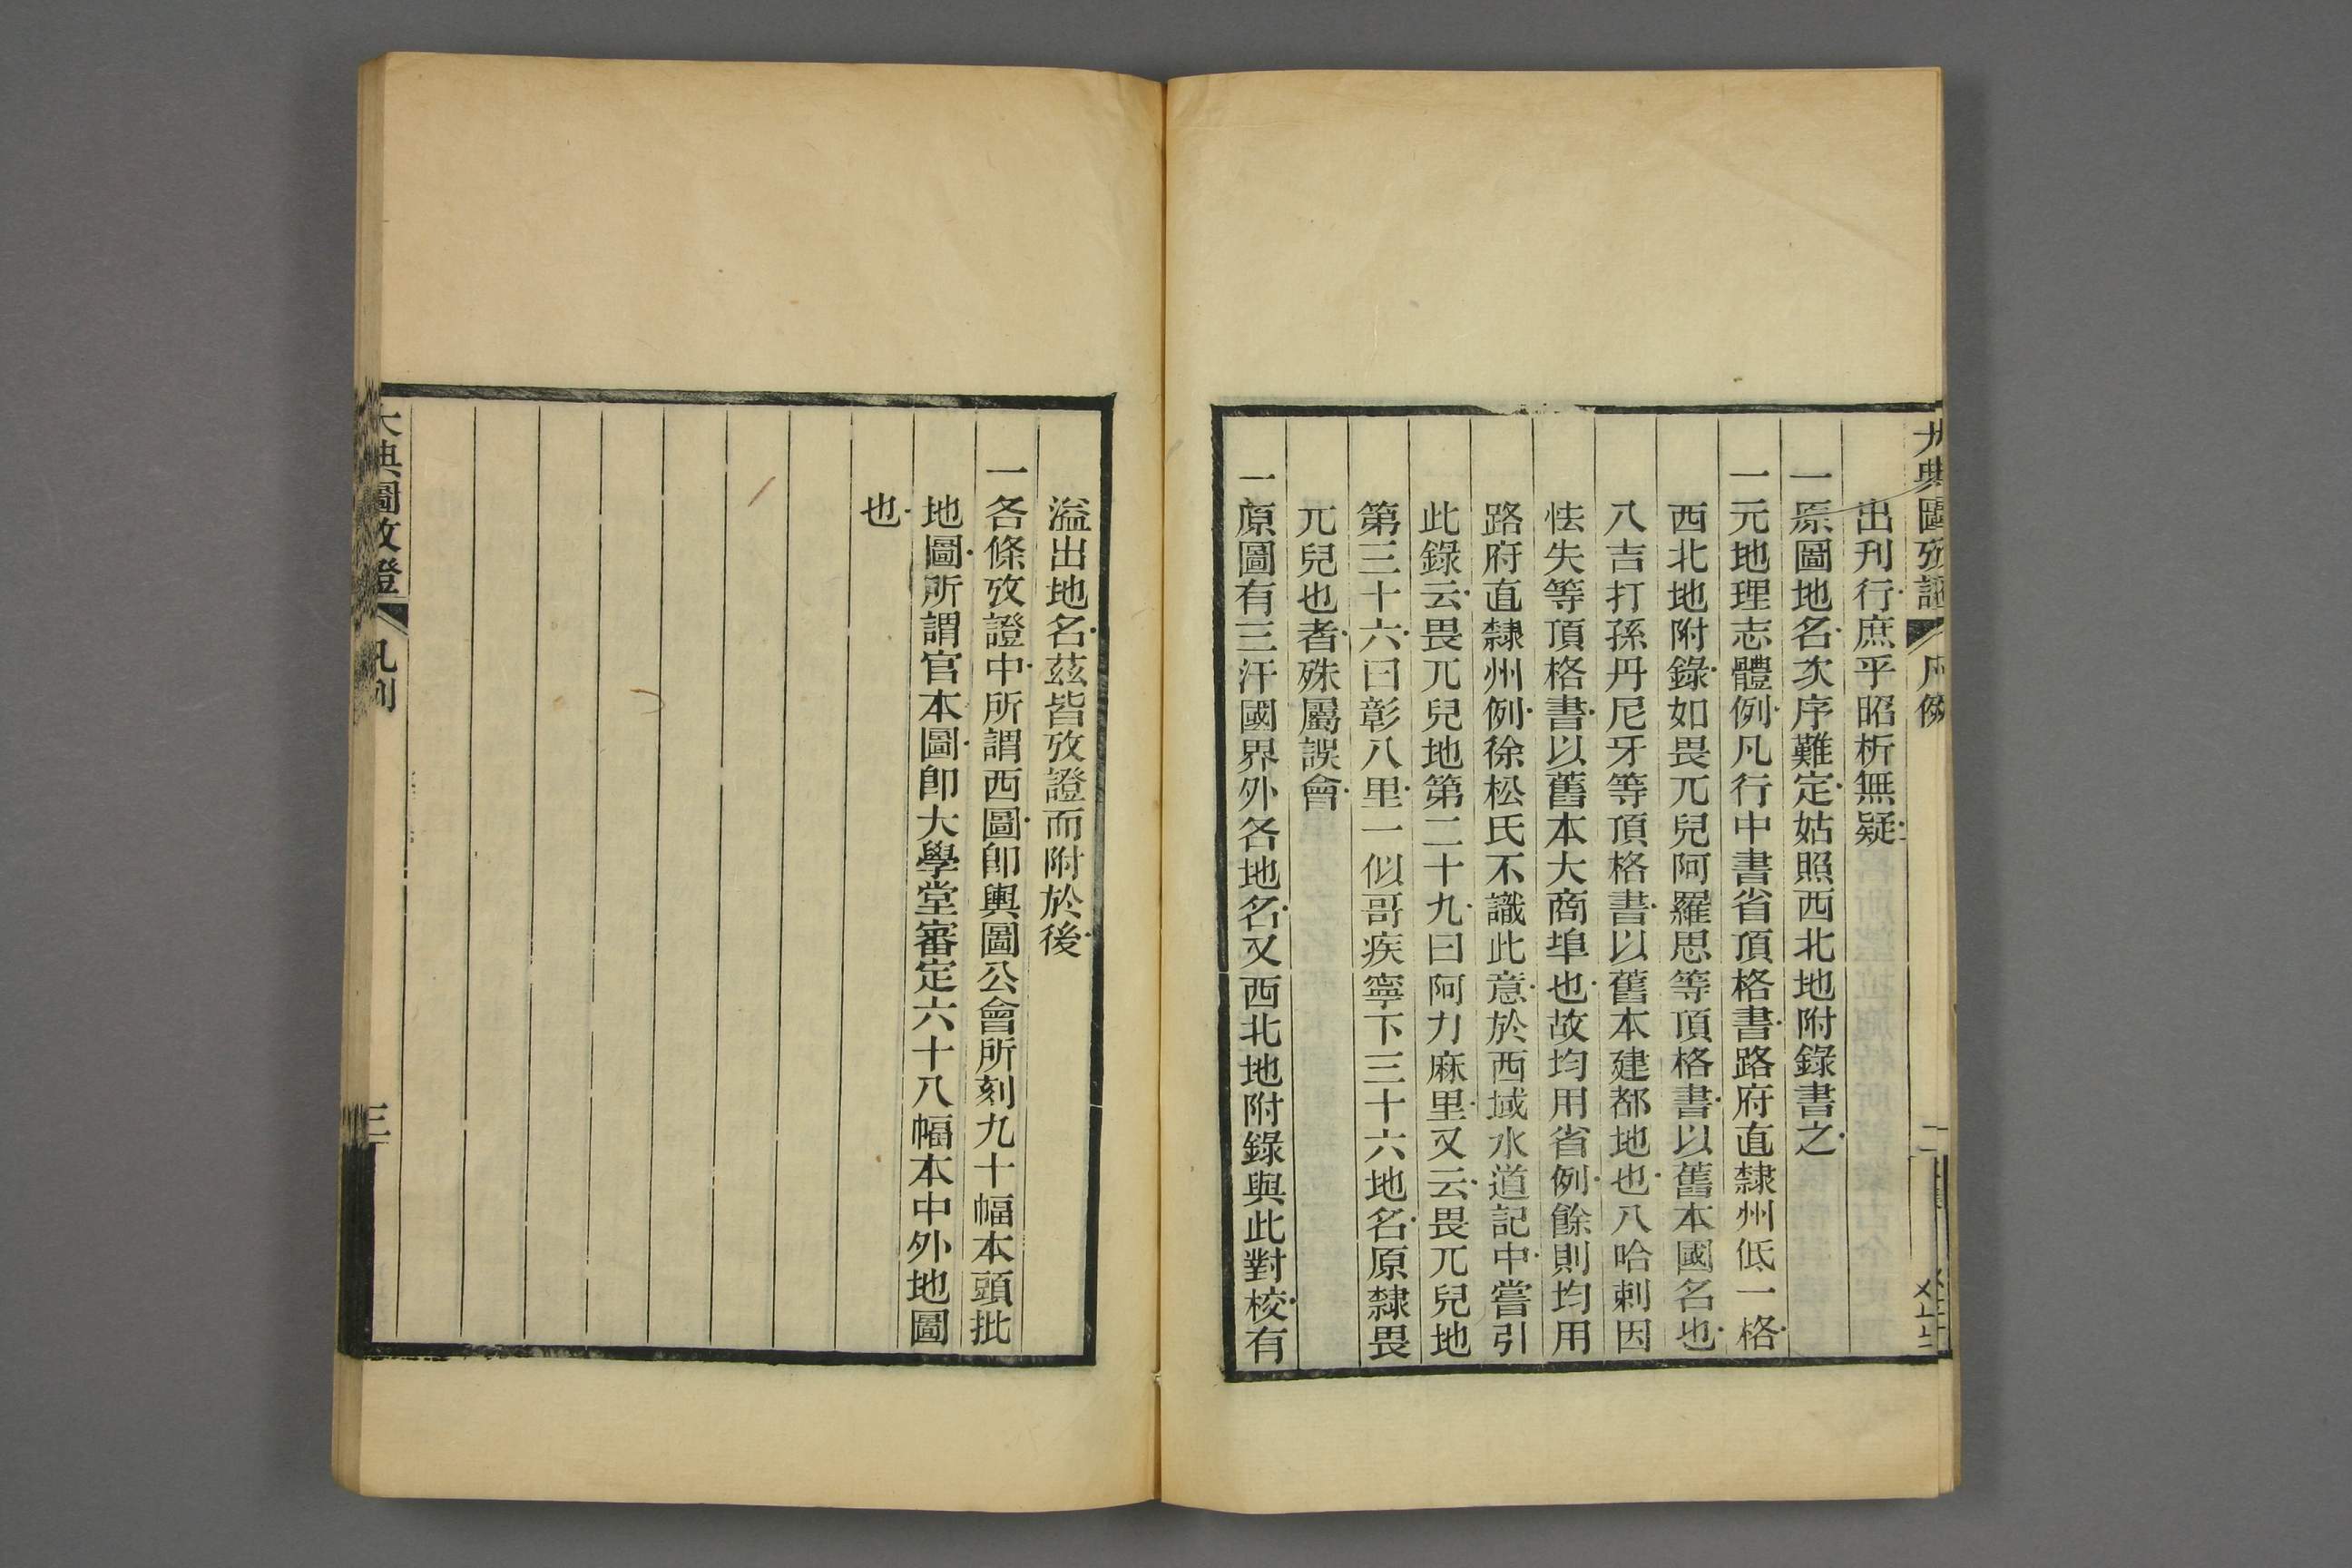 大典圖攷證 凡例 二
出刊行庶乎昭析無疑
一原圖地名次序難定姑照西北地附錄書之
一元地理志體例凡行中書省頂格書路府直隸州低一格
西北地附錄如畏兀兒阿羅思等頂格書以舊本國名也
八吉打孫丹尼牙等頂格書以舊本建都地也八哈剌因
怯失等頂格書以舊本大商埠也故均用省例餘則均用
路府直隸州例徐松氏不識此意於西域水道記中嘗引
此錄云畏兀兒地第二十九曰阿力麻里又云畏兀兒地
第三十六曰彰八里一似哥疾寧下三十六地名原隸畏
兀兒也者殊屬誤會
一原圖有三汗國界外各地名又西北地附錄與此對校有
溢出地名茲皆攷證而附於後
一各條攷證中所謂西圖卽輿圖公會所刻九十幅本頭批
地圖所謂官本圖卽大學堂審定六十八幅本中外地圖
也
大典圖攷證 凡例 三